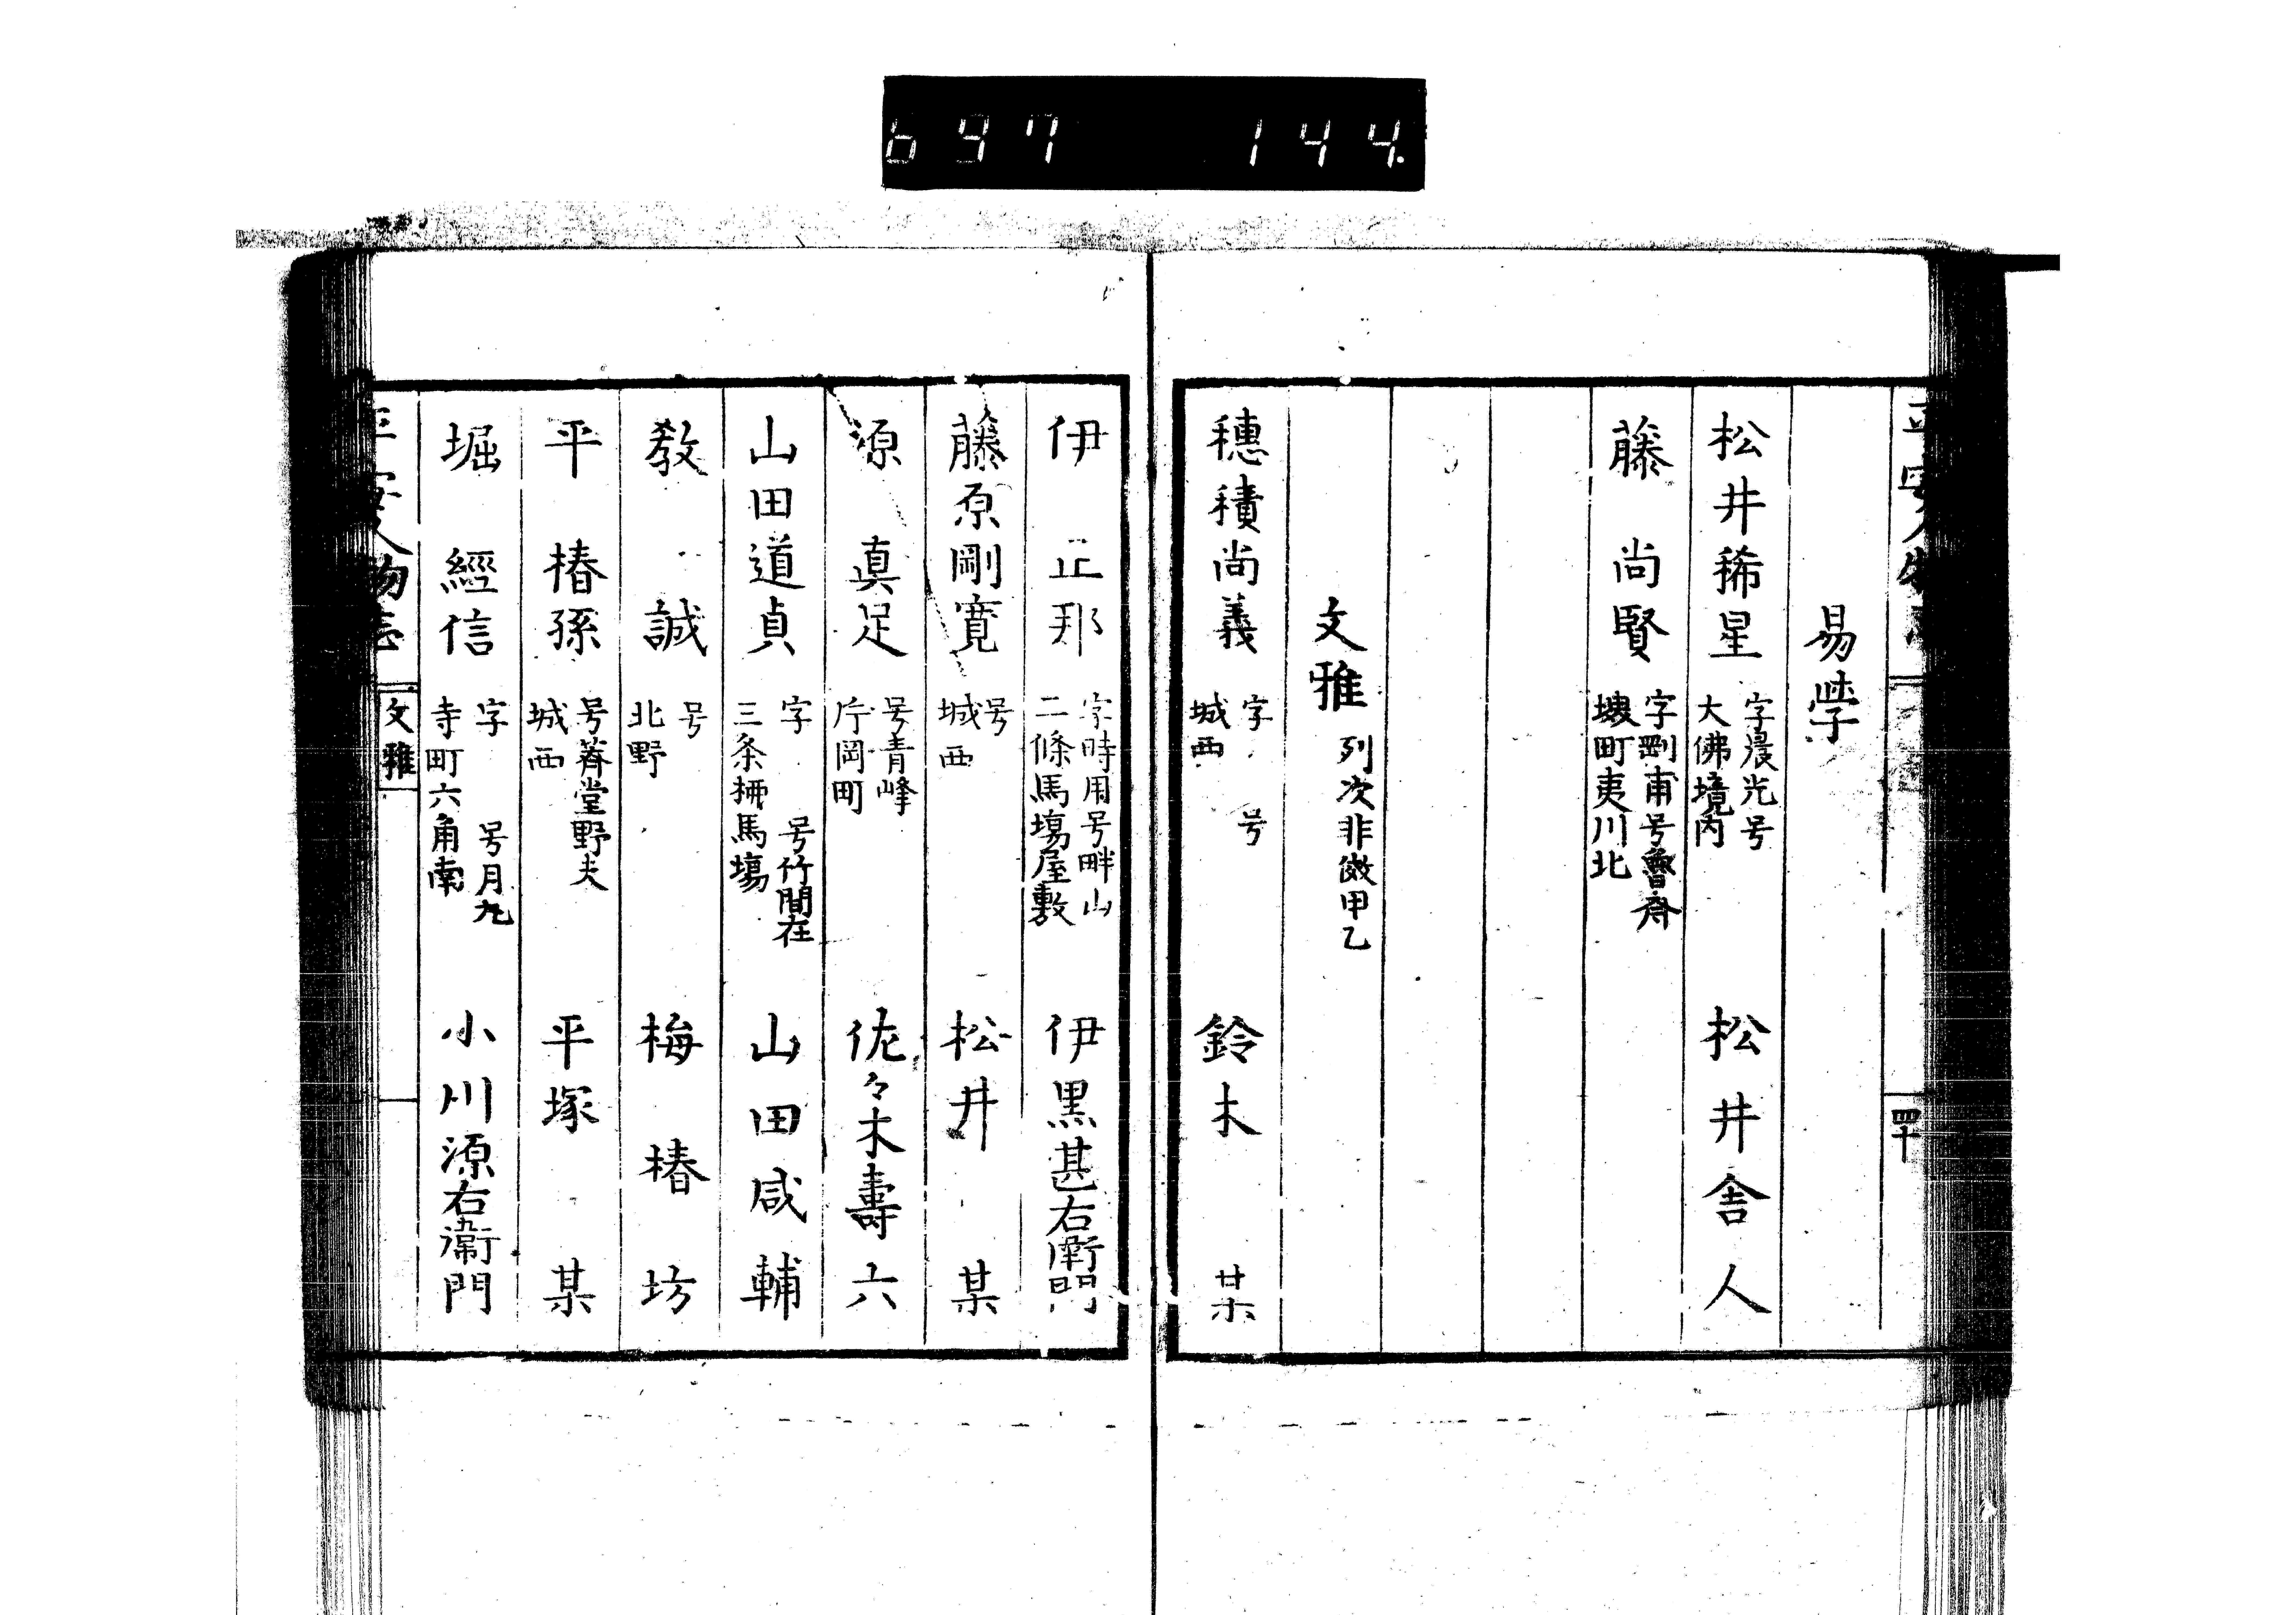 697 144.
平安人物志
四十
易學
松井稀星 字晨光号 大佛境内 松井舎人
藤 尚賢 字剛甫号魯斎 堺町夷川北
文雅 列次非做甲乙
穗積尚義 字 号 城西 鈴木 某
伊 正那 字時用号畔山 二條馬場屋敷 伊黒甚右衛門
藤原剛寛 号 城西 松井 某
源 真足 号青峰 片岡町 佐々木壽六
山田道貞 字 号竹間在 三条柳馬場 山田咸輔
教 誠 号 北野 梅椿坊
平 椿孫 号蒼堂野夫 城西 平塚 某
堀 經信 字 号月九 寺町六角南 小川源右衛門
平安人物志
文雅